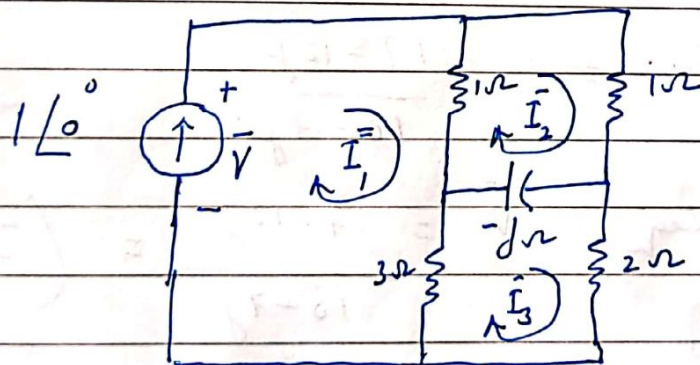 1∠0°
+
V̄
-
I̿₁
1Ω
Ī₂
1Ω
-jΩ
3Ω
Î₃
2Ω